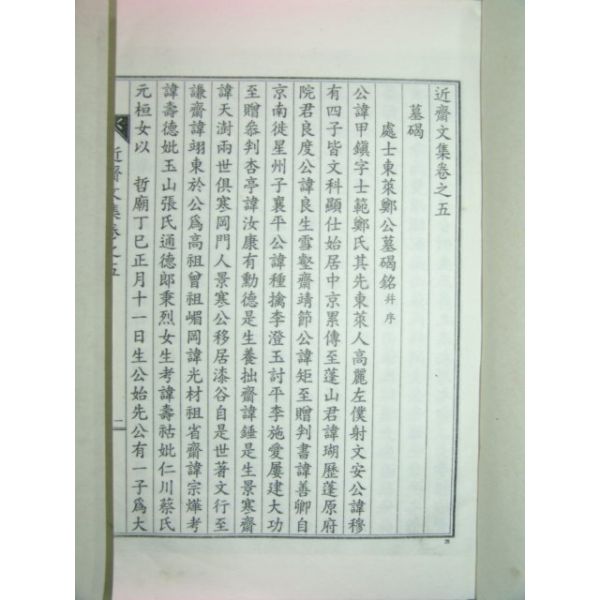 近齋文集卷之五
墓碣
處士東萊鄭公墓碣銘 幷序
公諱甲鎭字士範鄭氏其先東萊人高麗左僕射文安公諱穆
有四子皆文科顯仕始居中京累傳至蓬山君諱瑚歷蓬原府
院君良度公諱良生雪壑齋靖節公諱矩至贈判書諱善卿自
京南徙星州子襄平公諱種擒李澄玉討平李施愛屢建大功
至贈叅判杏亭諱汝康有勳德是生養拙齋諱錘是生景寒齋
諱天澍兩世俱寒岡門人景寒公移居漆谷自是世著文行至
謙齋諱翊東於公爲高祖曾祖嵋岡諱光材祖省齋諱宗燁考
諱壽德妣玉山張氏通德郎秉烈女生考諱壽祜妣仁川蔡氏
元桓女以 哲廟丁巳正月十一日生公始先公有一子爲大
近齋文集卷之五 一